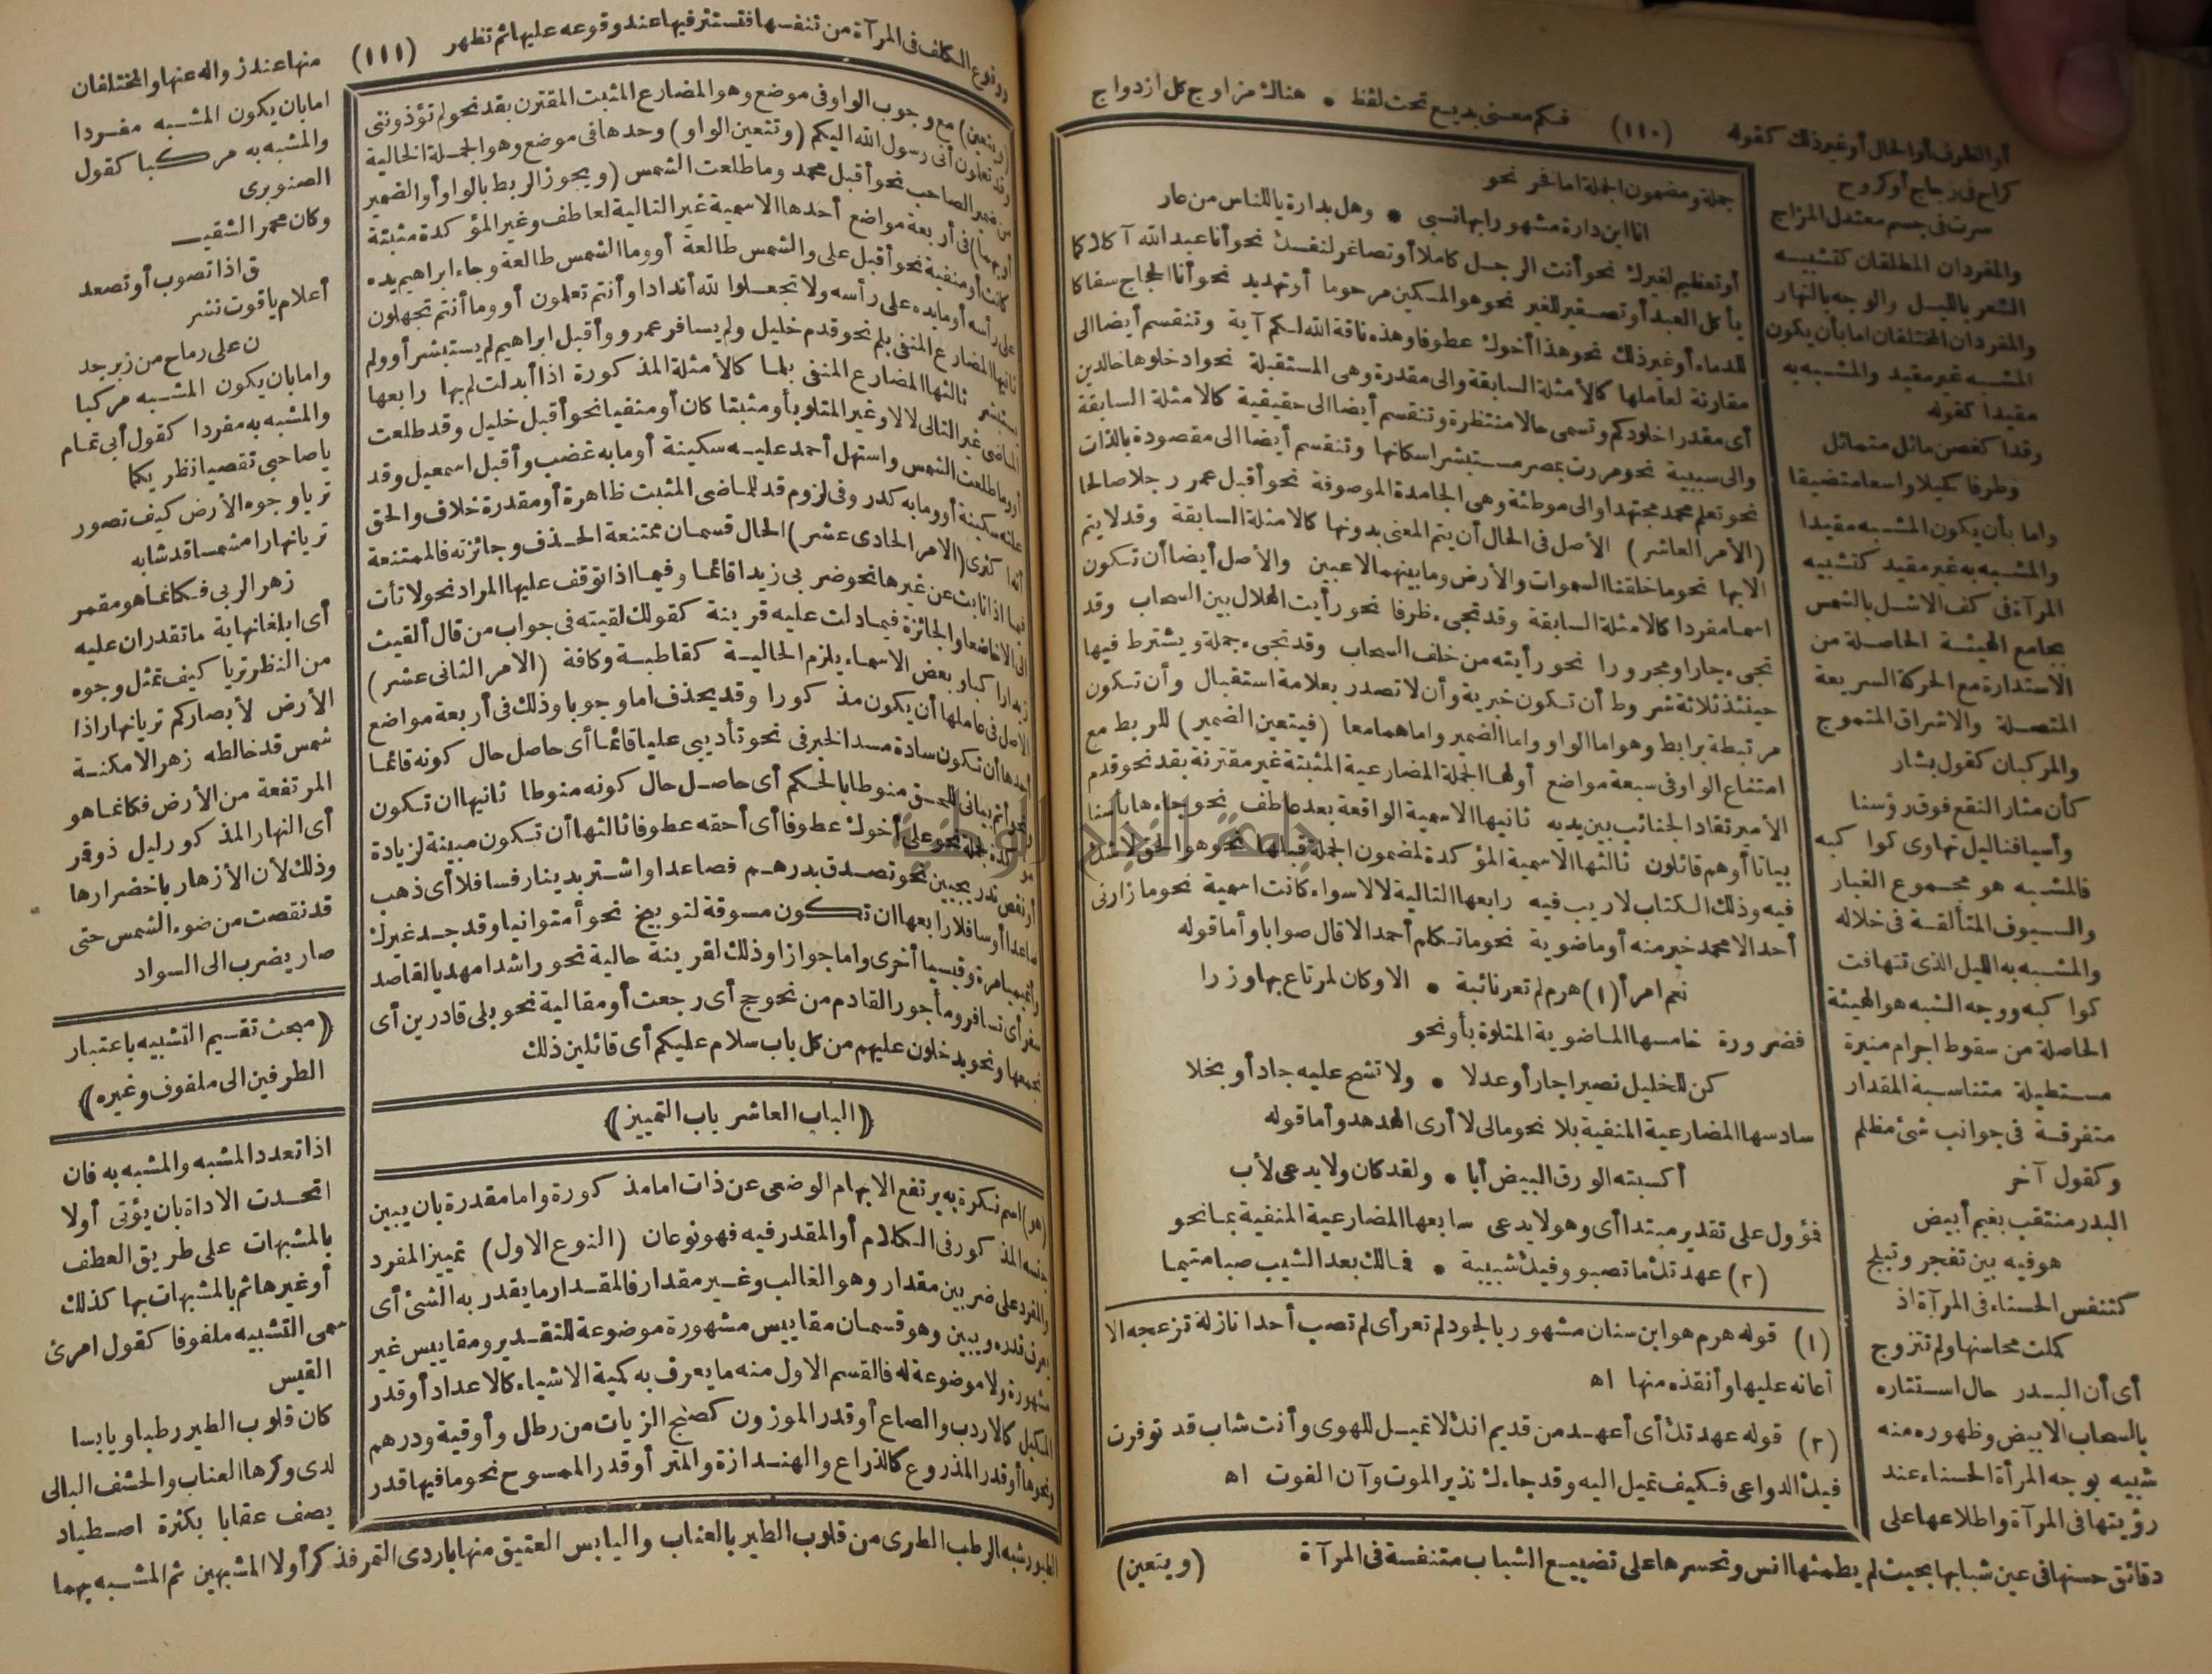 فكم معنى بديع تحت لفظ * هنالك مزاوج كل ازدواج
(١١٠)
أو الظرف أو الحال أو غير ذلك كقوله
كراح فى زجاج أو كروح
سرت فى جسم معتدل المزاج
والمفردان المطلقان كتشبيه
الشعر بالليل والوجه بالنهار
والمفردان المختلفان اما بأن يكون
المشبه غير مقيد والمشبه به
مقيدا كقوله
وقدا كغصن مائل متمائل
وطرفا كحيلا واسعا متضيقا
واما بأن يكون المشبه مقيدا
والمشبه به غير مقيد كتشبيه
المرآة فى كف الاشل بالشمس
بجامع الهيئة الحاصلة من
الاستدارة مع الحركة السريعة
المتصلة والاشراق المتموج
والمركبان كقول بشار
كأن مثار النقع فوق رؤسنا
وأسيافنا ليل تهاوى كواكبه
فالمشبه هو مجموع الغبار
والسيوف المتألقة فى خلاله
والمشبه به الليل الذى تتهافت
كواكبه ووجه الشبه هو الهيئة
الحاصلة من سقوط اجرام منيرة
مستطيلة متناسبة المقدار
متفرقة فى جوانب شئ مظلم
وكقول آخر
البدر منتقب بغيم أبيض
هو فيه بين تفجر وتبلج
كتنفس الحسناء فى المرآة اذ
كملت محاسنها ولم تتزوج
أى أن البدر حال استتاره
بالسحاب الابيض وظهوره منه
شبيه بوجه المرأة الحسناء عند
رؤيتها فى المرآة واطلاعها على
دقائق حسنها فى عين شبابها بحيث لم يطمثها انس وتحسرها على تضييع الشباب متنفسة فى المرآة
جملة ومضمون الجملة اما فخر نحو
انا ابن دارة مشهورا بها نسبى * وهل بدارة ياللناس من عار
أو تعظيم لغيرك نحو أنت الرجل كاملا أو تصاغر لنفسك نحو أنا عبد الله آكلا كما
يأكل العبد أو تصغير للغير نحو هو المسكين مرحوما أو تهديد نحو أنا الحجاج سفاكا
للدماء أو غير ذلك نحو هذا أخوك عطوفا وهذه ناقة الله لكم آية وتنقسم أيضا الى
مقارنة لعاملها كالأمثلة السابقة والى مقدرة وهى المستقبلة نحو ادخلوها خالدين
أى مقدرا خلودكم وتسمى حالا منتظرة وتنقسم أيضا الى حقيقية كالامثلة السابقة
والى سببية نحو مررت بمصر مستبشرا سكانها وتنقسم أيضا الى مقصودة بالذات
نحو تعلم محمد مجتهدا والى موطئة وهى الجامدة الموصوفة نحو أقبل عمرو رجلا صالحا
(الأمر العاشر) الأصل فى الحال أن يتم المعنى بدونها كالامثلة السابقة وقد لا يتم
الا بها نحو ما خلقنا السموات والأرض وما بينهما لاعبين والأصل أيضا أن تكون
اسما مفردا كالامثلة السابقة وقد تجىء ظرفا نحو رأيت الهلال بين السحاب وقد
تجىء جارا ومجرورا نحو رأيته من خلف السحاب وقد تجىء جملة ويشترط فيها
حينئذ ثلاثة شروط أن تكون خبرية وأن لا تصدر بعلامة استقبال وأن تكون
مرتبطة برابط وهو اما الواو واما الضمير واما هما معا (فيتعين الضمير) للربط مع
امتناع الواو فى سبعة مواضع أولها الجملة المضارعية المثبتة غير مقترنة بقد نحو قدم
الأمير تقاد الجنائب بين يديه ثانيها الاسمية الواقعة بعد عاطف نحو جاءها بأسنا
بياتا أو هم قائلون ثالثها الاسمية المؤكدة لمضمون الجملة قبلها نحو هو الحق لا شك
فيه وذلك الكتاب لا ريب فيه رابعها التالية لالا سواء كانت اسمية نحو ما زارنى
أحد الا محمد خير منه أو ماضوية نحو ما تكلم أحمد الا قال صوابا وأما قوله
نعم امرأ (١) هرم لم تعر نائبة * الا وكان لمرتاع بها وزرا
فضرورة خامسها الماضوية المتلوة بأو نحو
كن للخليل نصيرا جار أو عدلا * ولا تشح عليه جاد أو بخلا
سادسها المضارعية المنفية بلا نحو مالى لا أرى الهدهد وأما قوله
أكسبته الورق البيض أبا * ولقد كان ولا يدعى لأب
فؤول على تقدير مبتدا أى وهو لا يدعى سابعها المضارعية المنفية بما نحو
(٢) عهدتك ما تصبو وفيك شبيبة * فالك بعد الشيب صبا متيما
(١) قوله هرم هو ابن سنان مشهور بالجود لم تعر أى لم تصب أحدا نازلة تزعجه الا
أعانه عليها وأنقذه منها اه
(٢) قوله عهدتك أى أعهد من قديم انك لا تميل للهوى وأنت شاب قد توفرت
فيك الدواعى فكيف تميل اليه وقد جاءك نذير الموت وآن الفوت اه
(ويتعين)
وقوع الكلف فى المرآة من تنفسها فتستتر فيها عند وقوعه عليها ثم تظهر
(١١١)
(ويتعين) مع وجوب الواو فى موضع وهو المضارع المثبت المقترن بقد نحو لم تؤذوننى
وقد تعلمون أنى رسول الله اليكم (وتتعين الواو) وحدها فى موضع وهو الجملة الخالية
من ضمير الصاحب نحو أقبل محمد وما طلعت الشمس (ويجوز الربط بالواو أو الضمير
أو بهما) فى أربعة مواضع أحدها الاسمية غير التالية لعاطف وغير المؤكدة مثبتة
كانت أو منفية نحو أقبل على والشمس طالعة أو وما الشمس طالعة وجاء ابراهيم يده
على رأسه أو ما يده على رأسه ولا تجعلوا لله أندادا وأنتم تعلمون أو وما أنتم تجهلون
ثانيها المضارع المنفى بلم نحو قدم خليل ولم يسافر عمرو وأقبل ابراهيم لم يستبشر أو ولم
يستبشر ثالثها المضارع المنفى بلما كالأمثلة المذكورة اذا أبدلت لم بها رابعها
الماضى غير التالى لالا وغير المتلو بأو مثبتا كان أو منفيا نحو أقبل خليل وقد طلعت
أو وما طلعت الشمس واستهل أحمد عليه سكينة أو ما به غضب وأقبل اسمعيل وقد
علته سكينة أو وما به كدر وفى لزوم قد للماضى المثبت ظاهرة أو مقدرة خلاف والحق
أنها كثرى (الامر الحادى عشر) الحال قسمان ممتنعة الحذف وجائزته فالممتنعة
فيما اذا نابت عن غيرها نحو ضربى زيدا قائما وفيما اذا توقف عليها المراد نحو لا تأت
الى الا خاضعا والجائزة فيما دلت عليه قرينة كقولك لقيته فى جواب من قال ألقيت
زيدا راكبا وبعض الاسماء يلزم الحالية كقاطبة وكافة (الامر الثانى عشر)
الاصل فى عاملها أن يكون مذكورا وقد يحذف اما وجوبا وذلك فى أربعة مواضع
أحدها أن تكون سادة مسد الخبر فى نحو تأديبى عليا قائما أى حاصل حال كونه قائما
وأتم بيانى الحق منوطا بالحكم أى حاصل حال كونه منوطا ثانيها ان تكون
مؤكدة جملة نحو على أخوك عطوفا أى أحقه عطوفا ثالثها أن تكون مبينة لزيادة
أو نقص تدريجيين نحو تصدق بدرهم فصاعدا واشتر بدينار فسافلا أى ذهب
صاعدا أو سافلا رابعها ان تكون مسوقة لتوبيخ نحو أمتوانيا وقد جد غيرك
وأتميميا مرة وقيسيا أخرى واما جوازا وذلك لقرينة حالية نحو راشدا مهديا لقاصد
سفر أى تسافر ومأجورا لقادم من نحو حج أى رجعت أو مقالية نحو بلى قادرين أى
نجمعها ونحو يدخلون عليهم من كل باب سلام عليكم أى قائلين ذلك
(الباب العاشر باب التمييز)
(هو) اسم نكرة به يرتفع الابهام الوضعى عن ذات اما مذكورة واما مقدرة بان يبين
جنسه المذكور فى الكلام أو المقدر فيه فهو نوعان (النوع الاول) تمييز المفرد
والمفرد على ضربين مقدار وهو الغالب وغير مقدار فالمقدار ما يقدر به الشئ أى
يعرف قدره ويبين وهو قسمان مقاييس مشهورة موضوعة للتقدير ومقاييس غير
مشهورة ولا موضوعة له فالقسم الاول منه ما يعرف به كمية الاشياء كالاعداد أو قدر
المكيل كالاردب والصاع أو قدر الموزون كصنج الزيات من رطل وأوقية ودرهم
ونحوها أو قدر المذروع كالذراع والهندازة والمتر أو قدر الممسوح نحو ما فيها قدر
منها عند زواله عنها والمختلفان
اما بان يكون المشبه مفردا
والمشبه به مركبا كقول
الصنوبرى
وكان محمر الشقيـ
ق اذا تصوب أو تصعد
أعلام ياقوت نشر
ن على رماح من زبرجد
واما بان يكون المشبه مركبا
والمشبه به مفردا كقول أبى تمام
يا صاحبى تقصيا نظريكما
تريا وجوه الأرض كيف تصور
تريا نهارا مشمسا قد شابه
زهر الربى فكانما هو مقمر
أى ابلغا نهاية ما تقدران عليه
من النظر تريا كيف تمثل وجوه
الأرض لأبصاركم تريا نهارا ذا
شمس قد خالطه زهر الامكنة
المرتفعة من الأرض فكانما هو
أى النهار المذكور ليل ذو قمر
وذلك لأن الأزهار باخضرارها
قد نقصت من ضوء الشمس حتى
صار يضرب الى السواد
(مبحث تقسيم التشبيه باعتبار
الطرفين الى ملفوف وغيره)
اذا تعدد المشبه والمشبه به فان
اتحدت الاداة بان يؤتى أولا
بالمشبهات على طريق العطف
أو غيرها ثم بالمشبهات بها كذلك
سمى التشبيه ملفوفا كقول امرئ
القيس
كان قلوب الطير رطبا ويابسا
لدى وكرها العناب والحشف البالى
يصف عقابا بكثرة اصطياد
الطيور شبه الرطب الطرى من قلوب الطير بالعناب واليابس العتيق منها باردى التمر فذكر أولا المشبهين ثم المشبه بهما
جامعة النجاح الوطنية